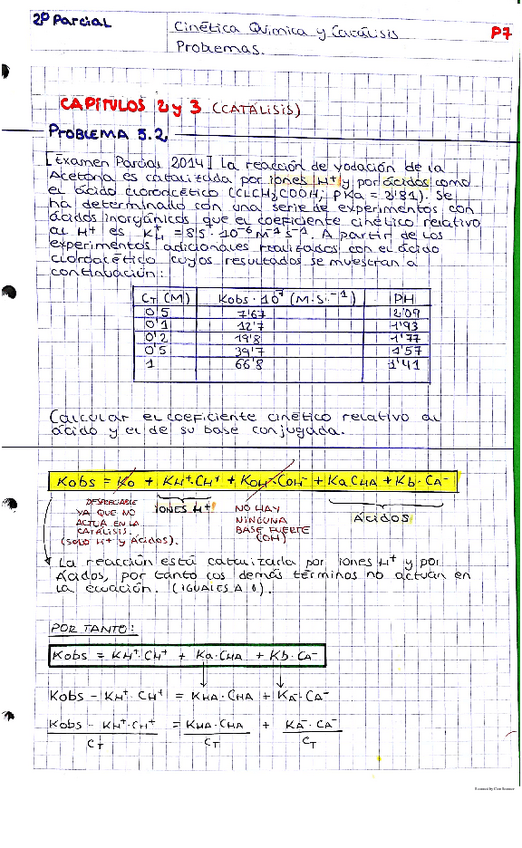 2º Parcial
Cinética Química y Catálisis
Problemas.
P7
CAPÍTULOS 2 y 3 (CATÁLISIS)
PROBLEMA 5.2
[Examen Parcial 2014] La reacción de yodación de la
Acetona es catalizada por iones H+ y por ácidos como
el ácido cloroacético (ClCH2COOH; pKa = 2'81). Se
ha determinado con una serie de experimentos con
ácidos inorgánicos que el coeficiente cinético relativo
al H+ es KH+ = 85·10-6 M-1 s-1. A partir de los
experimentos adicionales realizados con el ácido
cloroacético cuyos resultados se muestran a
continuación:
CT (M) Kobs·10⁷ (M·s-1) PH
0'5 7'67 2'09
0'1 12'7 1'93
0'2 19'8 1'77
0'5 39'7 1'57
1 66'8 1'41
Calcular el coeficiente cinético relativo al
ácido y el de su base conjugada.
Kobs = K0 + KH+·CH+ + KOH-·COH- + Ka CHA + Kb·CA-
DESPRECIABLE
YA QUE NO
ACTÚA EN LA
CATÁLISIS.
(SOLO H+ y ÁCIDOS).
IONES H+
NO HAY
NINGUNA
BASE FUERTE
(OH)
ÁCIDOS
La reacción está catalizada por iones H+ y por
Ácidos, por tanto los demás términos no actúan en
la ecuación. (IGUALES A 0).
POR TANTO:
Kobs = KH+·CH+ + Ka·CHA + Kb·CA-
Kobs - KH+·CH+ = KHA·CHA + KA-·CA-
Kobs - KH+·CH+ = KHA·CHA + KA-·CA-
CT CT CT